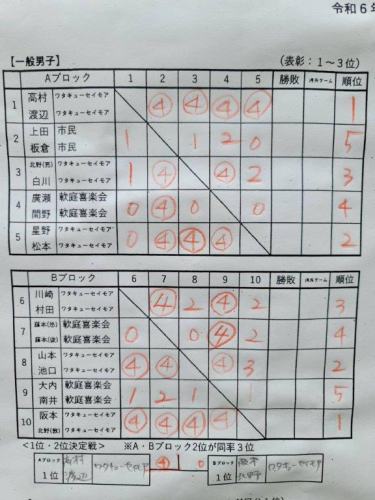 令和6年
【一般男子】 (表彰:1~3位)
Aブロック 1 2 3 4 5 勝敗 順位
1 高村 ワタキューセイモア ④ ④ ④ ④ 1
渡辺 ワタキューセイモア
2 上田 市民 1 1 2 0 5
板倉 市民
3 北野(亮) ワタキューセイモア 1 ④ ④ 2 3
白川 ワタキューセイモア
4 廣瀬 軟庭喜楽会 0 ④ 0 0 4
間野 軟庭喜楽会
5 星野 ワタキューセイモア 0 ④ ④ ④ 2
松本 ワタキューセイモア
Bブロック 6 7 8 9 10 勝敗 順位
6 川崎 ワタキューセイモア ④ 2 ④ 2 3
村田 ワタキューセイモア
7 軟庭喜楽会 0 0 ④ 2 4
軟庭喜楽会
8 山本 ワタキューセイモア ④ ④ ④ 1 2
池口 ワタキューセイモア
9 大内 軟庭喜楽会 1 2 1 1 5
南井 軟庭喜楽会
10 阪本 ワタキューセイモア ④ ④ ④ ④ 1
ワタキューセイモア
<1位・2位決定戦> ※A・Bブロック2位が同率3位
Aブロック 高村 ワタキューセイモア ④ 1 0 Bブロック 阪本 ワタキューセイモア
1位 渡辺 1位